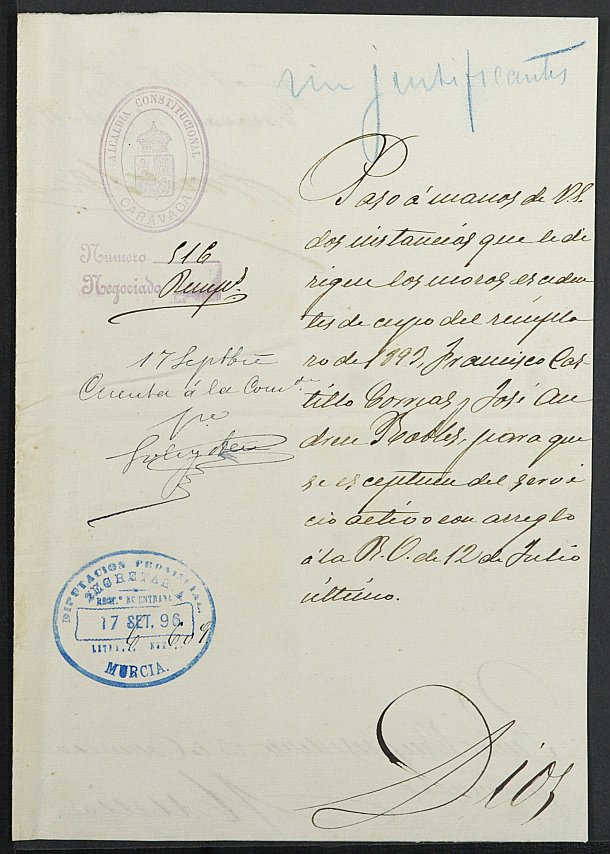 sin justificantes
ALCALDIA CONSTITUCIONAL
CARAVACA
Número 516
Negociado Remp.º
17 Septbre
Cuenta á la Com.on
Paso á manos de V.S.
dos instancias que le di
rigen los mozos esceden
tes de cupo del reempla
zo de 1893, Francisco Cas
tillo Torras y José An
dreu Robles, para que
se esceptuen del servi
cio activo con arreglo
á la R.O. de 12 de Julio
último.
DIPUTACION PROVINCIAL
SECRETARIA
REG.º DE ENTRADA
17 SET. 96
MURCIA.
Dios